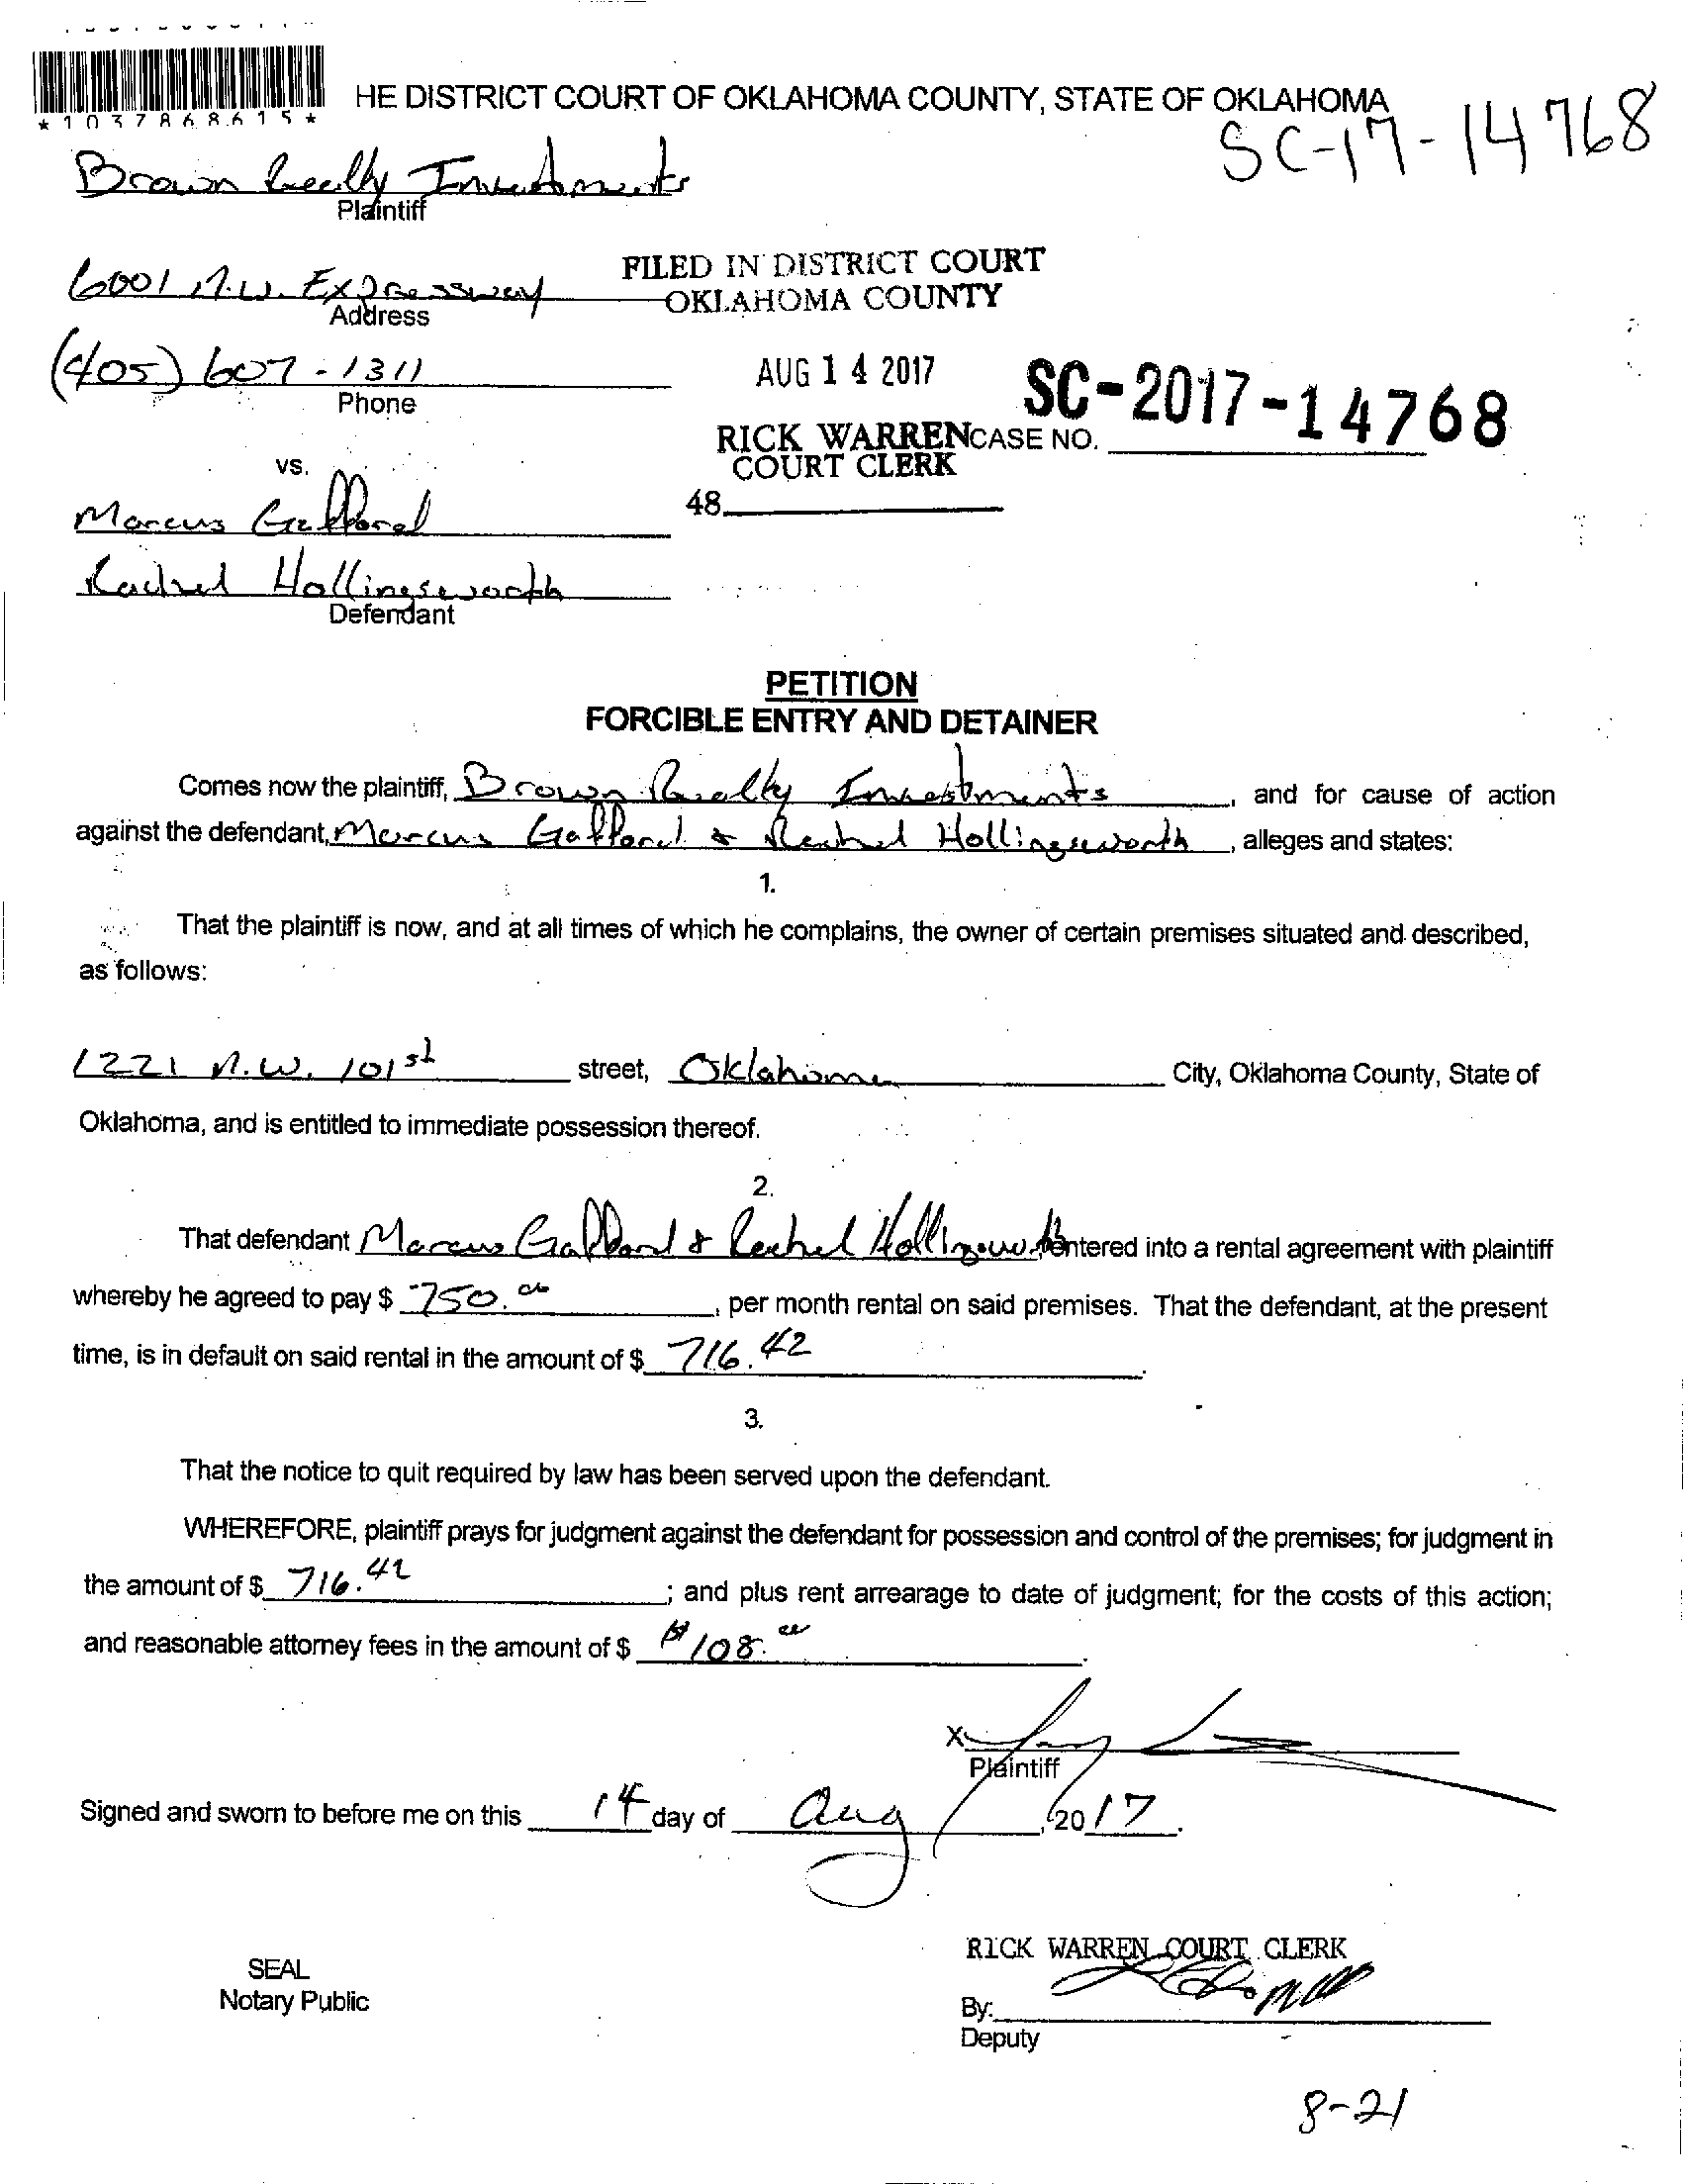 *1037868615*
HE DISTRICT COURT OF OKLAHOMA COUNTY, STATE OF OKLAHOMA
SC-17-14768
Brown Realty Investments
Plaintiff
6001 N.W. Expressway
Address
FILED IN DISTRICT COURT
OKLAHOMA COUNTY
(405) 607-1311
Phone
AUG 14 2017
SC-2017-14768
RICK WARREN CASE NO.
COURT CLERK
vs.
48.
Marcus Gafford
Rachel Hollingsworth
Defendant
PETITION
FORCIBLE ENTRY AND DETAINER
Comes now the plaintiff, Brown Realty Investments, and for cause of action
against the defendant, Marcus Gafford & Rachel Hollingsworth, alleges and states:
1.
That the plaintiff is now, and at all times of which he complains, the owner of certain premises situated and described,
as follows:
1221 N.W. 101st street, Oklahoma City, Oklahoma County, State of
Oklahoma, and is entitled to immediate possession thereof.
2.
That defendant Marcus Gafford & Rachel Hollingsworth entered into a rental agreement with plaintiff
whereby he agreed to pay $ 750.00, per month rental on said premises. That the defendant, at the present
time, is in default on said rental in the amount of $ 716.42.
3.
That the notice to quit required by law has been served upon the defendant.
WHEREFORE, plaintiff prays for judgment against the defendant for possession and control of the premises; for judgment in
the amount of $ 716.42; and plus rent arrearage to date of judgment; for the costs of this action;
and reasonable attorney fees in the amount of $ $108.00.
X
Plaintiff
Signed and sworn to before me on this 14 day of Aug, 2017.
RICK WARREN COURT CLERK
SEAL
Notary Public
By:
Deputy
8-21